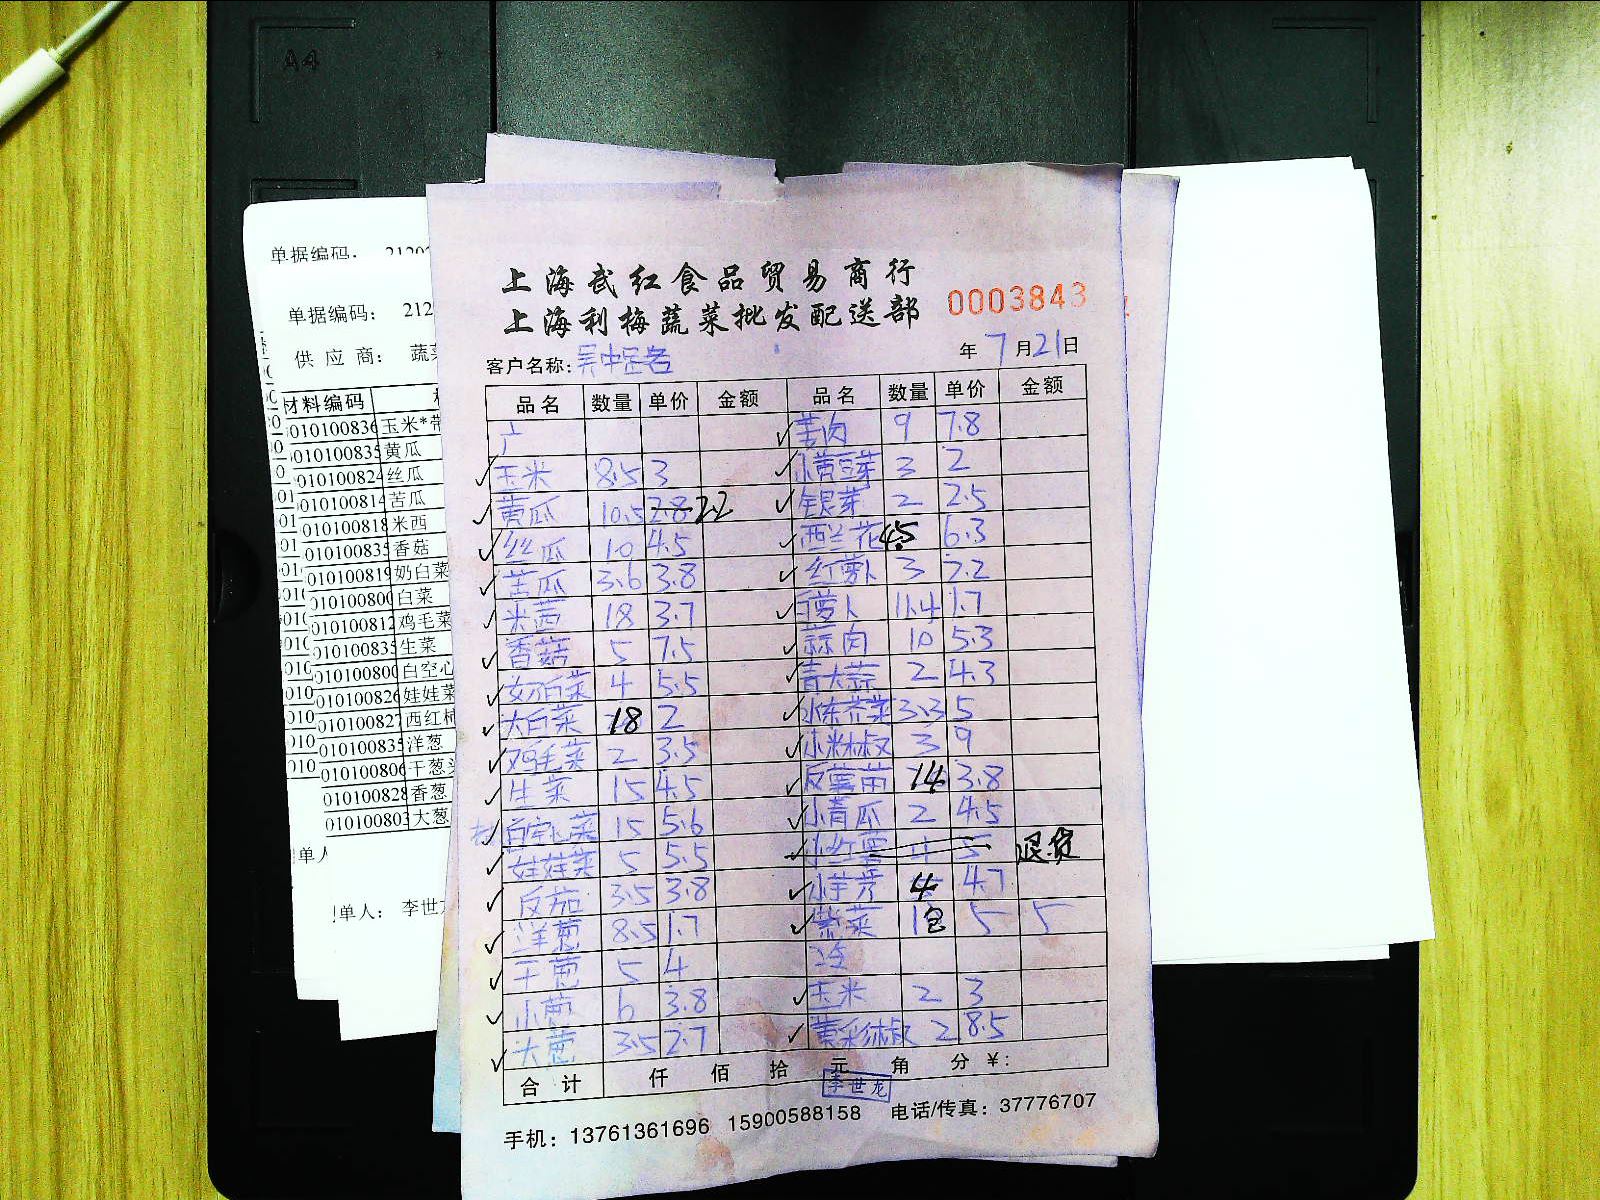 A4
单据编码：
单据编码： 212
供 应 商： 蔬菜
材料编码
010100836 玉米*带
010100835 黄瓜
010100824 丝瓜
010100814 苦瓜
010100818 米西
010100835 香菇
010100819 奶白菜
010100800 白菜
010100812 鸡毛菜
010100835 生菜
010100800 白空心
010100826 娃娃菜
010100827 西红柿
010100835 洋葱
010100806 干葱头
010100828 香葱
010100803 大葱
单人
单人： 李世龙
上海武红食品贸易商行
上海利梅蔬菜批发配送部
0003843
客户名称：
年 7 月 21 日
品名 数量 单价 金额 品名 数量 单价 金额
广 姜肉 9 7.8
玉米 8.5 3 小黄豆芽 3 2
黄瓜 10.5 2.8 2.2 银芽 2 2.5
丝瓜 10 4.5 西兰花 4.5 6.3
苦瓜 3.6 3.8 红萝卜 3 7.2
米茜 18 3.7 萝卜 11.4 1.7
香菇 5 7.5 蒜肉 10 5.3
奶白菜 4 5.5 青大蒜 2 4.3
大白菜 18 2 冰冻芥菜 3.3 5
鸡毛菜 2 3.5 小米椒 3 9
生菜 15 4.5 反薯苗 14 3.8
白空心菜 15 5.6 小青瓜 2 4.5
娃娃菜 5 5.5 小红薯 4 5 退货
反茄 3.5 3.8 小芋艿 4 4.7
洋葱 8.5 1.7 紫菜 1包 5 5
干葱 5 4
小葱 6 3.8 玉米 2 3
大葱 3.5 2.7 黄彩椒 2 8.5
合计 仟 佰 拾 元 角 分 ¥：
李世龙
手机：13761361696 15900588158 电话/传真：37776707